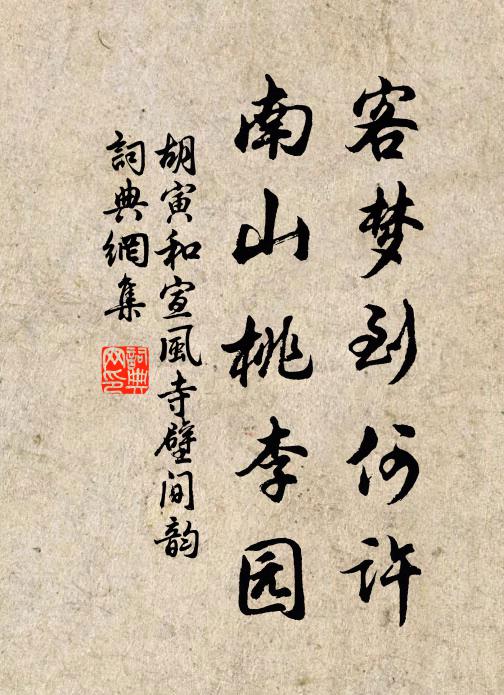 客梦到何许
南山桃李园
胡寅和宣風寺壁间韵
詞典網集
詞典网印